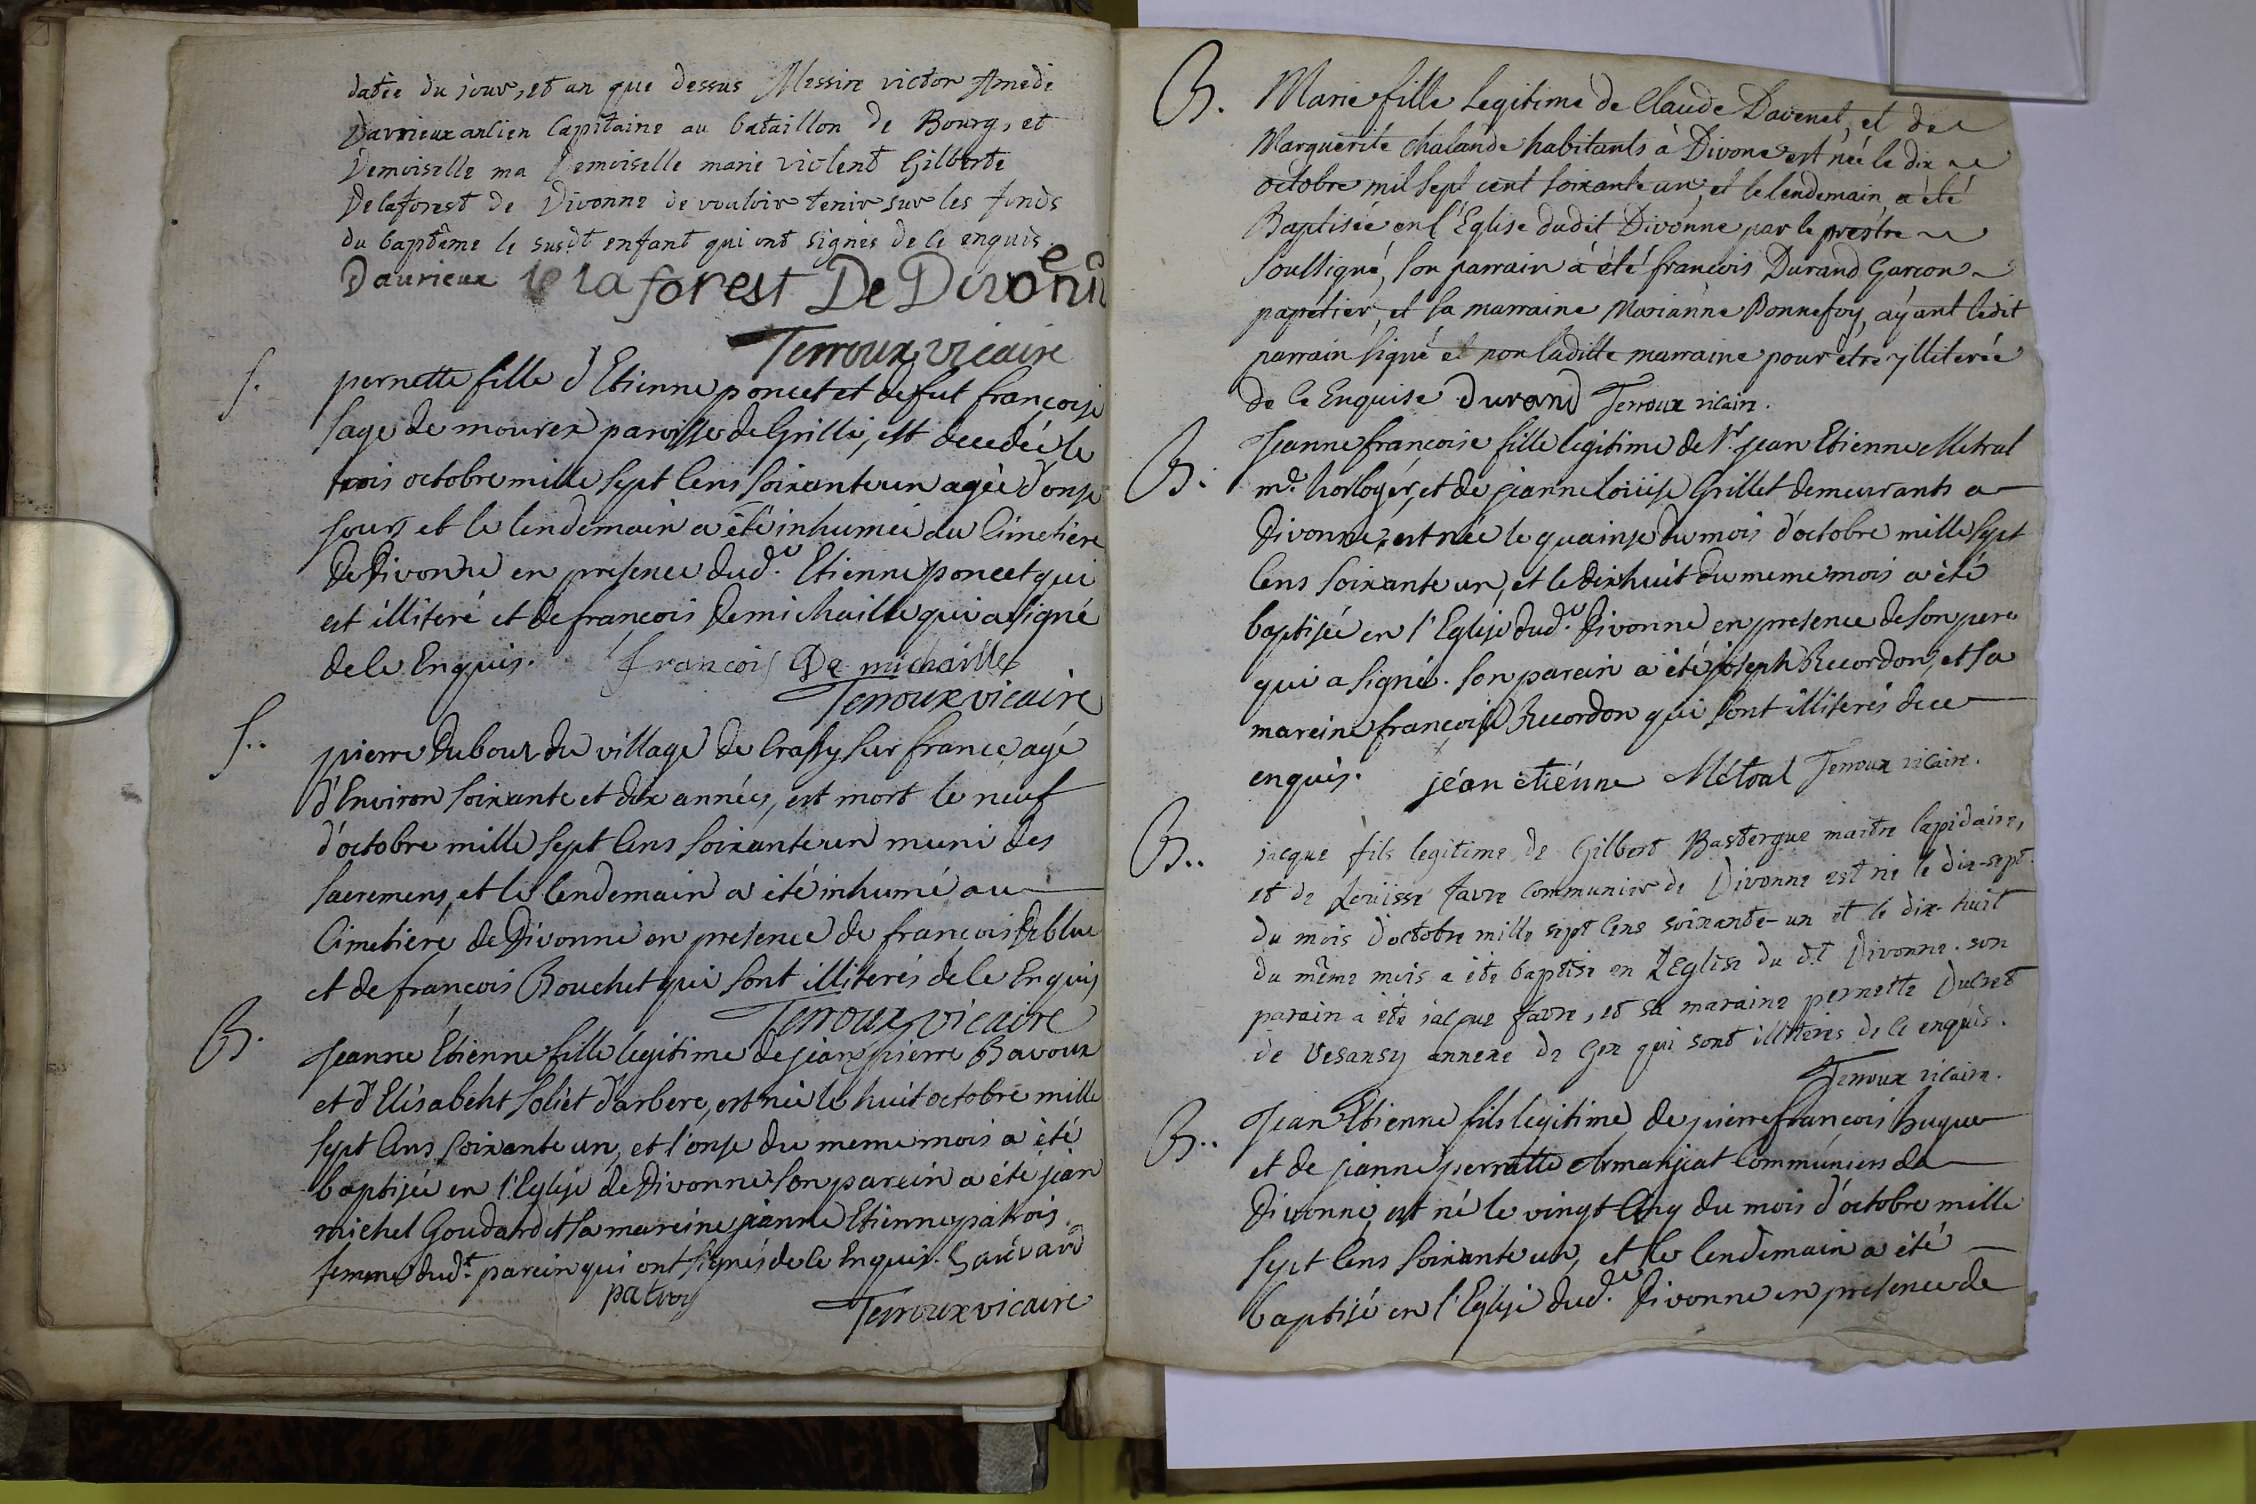 datée du jour, et an que dessus Messire victor Amedé
Davrieux ancien Capitaine au bataillon de Bourg, et
Demoiselle ma Demoiselle marie violent Gilberte
Delaforest de Divonne de vouloir tenir sur les fonds
du baptême le susdt enfant qui ont signés de ce enquis.
Davrieux de la forest De Divonne
Terroux vicaire
S. pernette fille d'Etienne poncet et defut françoise
Sage de mourex paroisse de Grilli, est decedée le
trois octobre mille sept cens soixante un agèe d'onse
jours et le lendemain a été inhumée au Cimetiere
de Divonne en presence dud. Etienne poncet qui
est illiteré et de francois Demichaille qui a signé
de ce Enquis. francois De michaille
Terroux vicaire
S.. pierre Dubour du village de Crassy sur france, agé
d'Environ soixante et dix années, est mort le neuf
d'octobre mille sept cens soixante un muni des
sacremens, et le lendemain a été inhumé au
Cimetiére de Divonne en presence de francois Deblue
et de francois Bouchet qui sont illiterés de ce Enquis
Terroux vicaire
B. Jeanne Etienne fille legitime de jean pierre Bavoux
et d'Elisabeht Soliet d'arbere, est née le huit octobre mille
sept cens soixante un, et l'onse du meme mois a été
baptisée en l'Eglise de Divonne son parein a été jean
michel Goudard et sa mareine jeanne Etienne patrois
femme dud.t parein qui ont signés de ce Enquis.
patroy
Terroux vicaire
B. Marie fille legitime de Claude Davenet, et de
Marguerite chalande habitants à Divone est née le dix
octobre mil sept cent soixante un, et le lendemain a été
Baptisée en l'Eglise dudit Divonne par le prestre
soussigné, son parrain a été francois Durand Garcon
papetier, et sa marraine Marianne Bonnefoy, aÿant ledit
parrain signé et non laditte marraine pour être jlliterée
de ce Enquise Durand Terroux vicaire.
B. Jeanne francoise fille legitime de Sr. jean Etienne Metral
md. horloger, et de jeanne loüise Grillet demeurants a
Divonne, est née le quainse du mois d'octobre mille sept
cens soixante un, et le dixhuit du meme mois a été
baptisée en l'Eglise dud. Divonne en presence de son pere
qui a signé. son parein a été joseph Recordon, et sa
mareine françoise Recordon qui sont illiterés de ce
enquis. jéan etiénne Métral Terroux vicaire.
B.. jacque fils legitime de Gilbert Bastergue maitre lapidaire,
et de Louisse favre communier de Divonne est né le dix-sept.
du mois d'octobre mille sept cens soixante-un et le dix-huit
du même mois a été baptisé en L'Eglise du dt Divonne. son
parain a été jacque favre, et sa maraine pernette Ducret
de vesansy annexe de Gex qui sont illiteres de ce enquis.
Terroux vicaire.
B.. Jean Etienne fils legitime de pierre francois hugue
et de jeanne pernette Armanjeat Communiers de
Divonne, est né le vingt cinq du mois d'octobre mille
sept cens soixante un, et le lendemain a été
baptisé en l'Eglise dud. Divonne en presence de